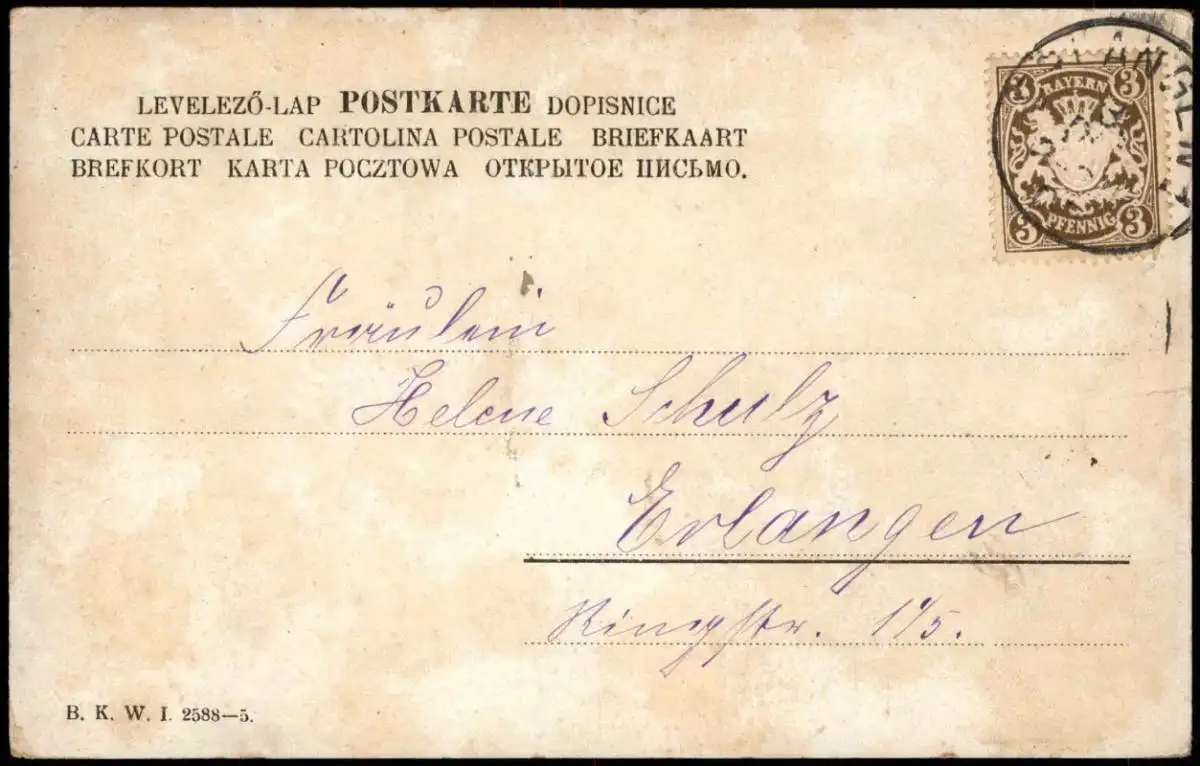 LEVELEZŐ-LAP POSTKARTE DOPISNICE
CARTE POSTALE CARTOLINA POSTALE BRIEFKAART
BREFKORT KARTA POCZTOWA ОТКРЫТОЕ ПИСЬМО.
3 3
BAYERN
PFENNIG
3 3
Fräulein
Helene Schulz
Erlangen
Ringstr.
B. K. W. I. 2588—5.